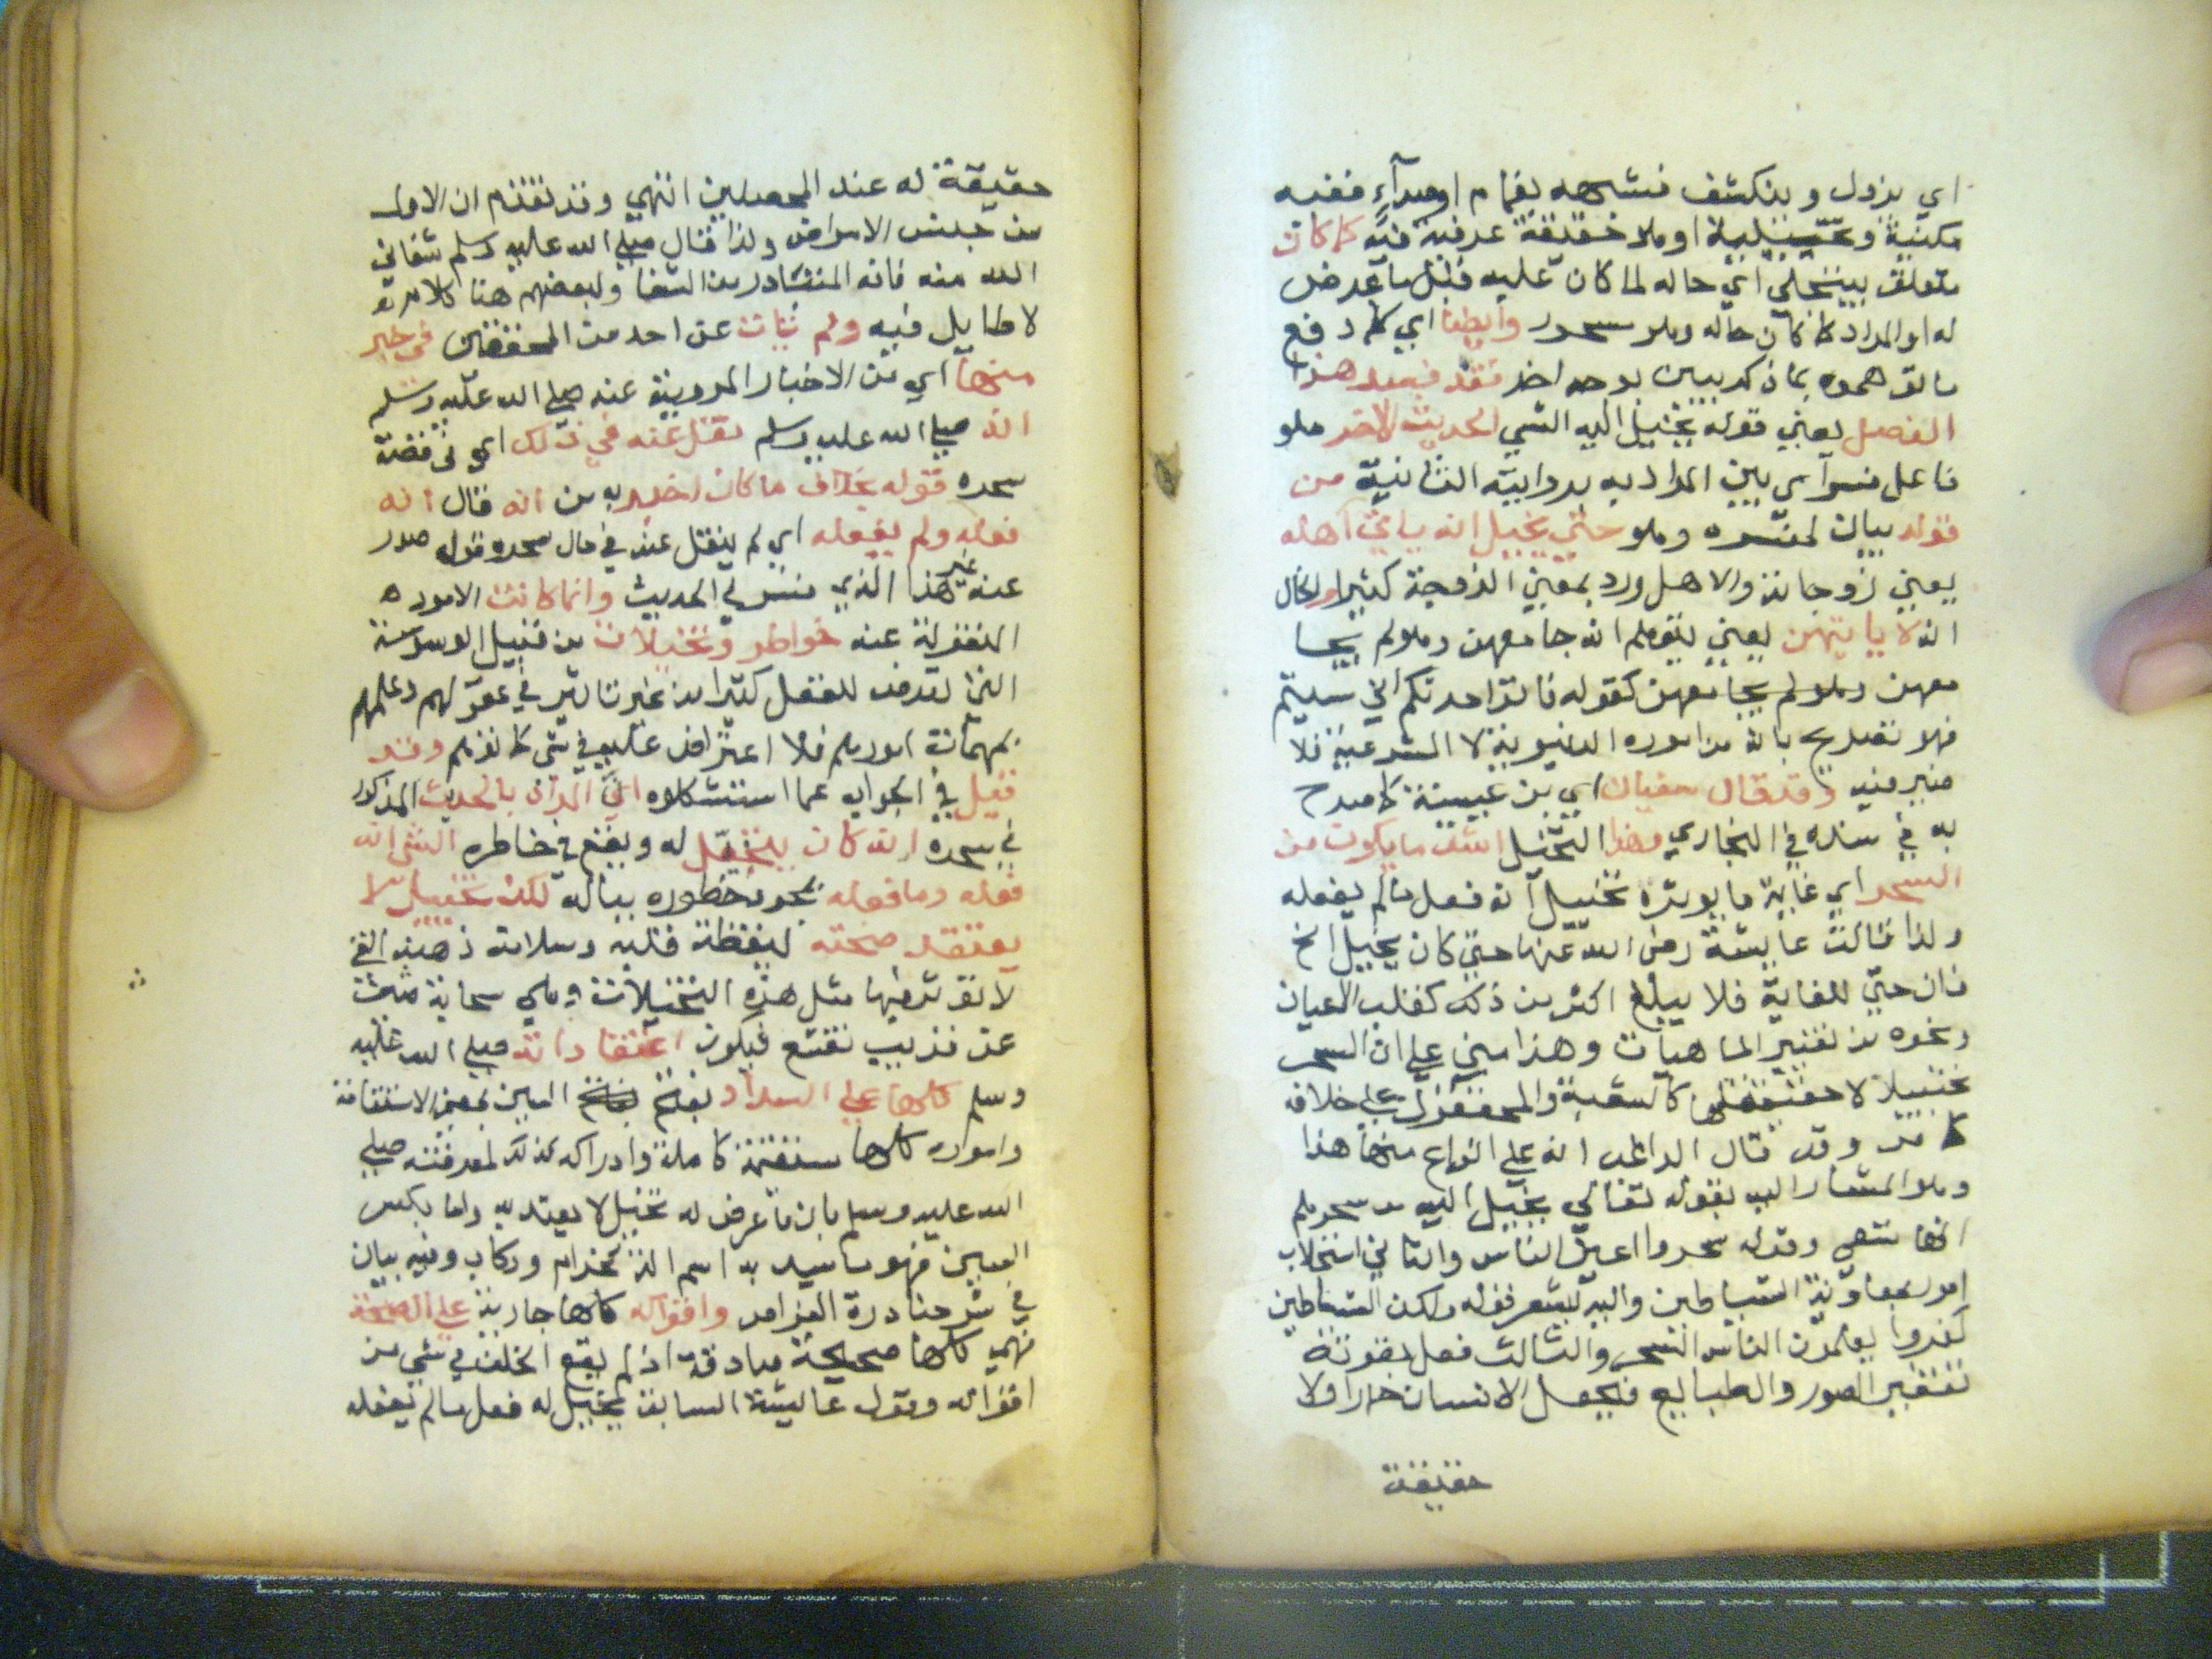 اي يزول وينكشف فشبهه بغمام او صدآء ففيه
مكنية وتخييلية او هو حقيقة عرفية فيه كما كان
متعلق بينجلي اي حاله لما كان عليه قبل ما عرض
له او المراد كما كان حاله وهو مسحور وايضا اي كما دفع
ما توهموه بما ذكر يبين بوجه اخر فقد فسر هذا
الفصل يعني قوله يخيل اليه الشي الحديث الاخر هو
فاعل فسر اي بين المراد به بروايته الثانية من
قوله بيان لمفسره وهو حتى يخيل انه ياتي اهله
يعني زوجاته والاهل ورد بمعنى الزوجة كثيرا والحال
انه لا ياتيهن يعني يتوهم انه جامعهن وهو لم يجا
معهن وهو لم يجامعهن كقوله فاتوا حرثكم انى شئتم
فهو تصريح بانه من اموره الدنيوية لا الشرعية فلا
ضير فيه وقد قال سفيان اي بن عيينة كما صرح
به في سنده في البخاري وهذا التخيل اشد ما يكون من
السحر اي غاية ما يوثره تخييل انه فعل ما لم يفعله
ولذا قالت عايشة رضي الله عنها حتى كان يخيل الخ
فان حتى للغاية فلا يبلغ اكثر من ذلك كقلب الاعيان
ونحوه من تغيير الماهيات وهذا مبني على ان السحر
تخييلا لا حقيقة لها كالشعبذة والمحققون على خلافه
كما مر وقد قال الراغب انه على انواع منها هذا
وهو المشار اليه بقوله تعالى يخيل اليه من سحرهم
انها تسعى وقوله سحروا اعين الناس والثاني استجلاب
امور بمعاونة الشياطين واليه يشعر قوله ولكن الشياطين
كفروا يعلمون الناس السحر والثالث فعل بقوته
تتغير الصور والطبايع فيجعل الانسان حمارا ولا
حقيقة
حقيقة له عند المحصلين انتهي وقد تقدم ان الاول
من جنس الامراض ولذا قال صلى الله عليه وسلم شفاني
الله منه فانه المتبادر من الشفا ولبعضهم هنا كلام
لا طايل فيه ولم يات عن احد من المحققين في خبر
منها اي من الاخبار المروية عنه صلى الله عليه وسلم
انه صلى الله عليه وسلم نقل عنه في ذلك اي في قصة
سحره قوله بخلاف ما كان اخبر به من انه قال انه
فعله ولم يفعله اي لم ينقل عنه في حال سحره قول صدر
عنه غير هذا الذي فسر في الحديث وانما كانت الامور ه
المنقولة عنه خواطر وتخيلات من قبيل الوسوسة
التي تعرض للعقل كثيرا من غير تاثير في عقولهم وعلمهم
بمهمات امورهم فلا اعتراض عليه في شي كما تقدم وقد
قيل في الجواب عما استشكلوه ان المراد بالحديث المذكور
في سحره انه كان يتخيل له ويقع في خاطره الشي انه
فعله وما فعله بمجرد خطوره بباله لكنه تخييل لا
يعتقد صحته ليقظة قلبه وسلامة ذهنه التي
لا توثر فيها مثل هذه التخيلات وهي سحابة صيف
عن قريب تقشع فيكون اعتقاداته صلى الله عليه
وسلم كلها على السداد بفتح السين بمعنى الاستقامة
واموره كلها مستقيمة كاملة وادراكه كذلك لمعرفته صلى
الله عليه وسلم بان ما عرض له تخيل لا يعتد به واما بكسر
السين فهو ما يسد به اسم الة كحزام وركاب وفيه بيان
في شرحنا درة الغواص واقواله كلها جارية على الصحة
فهي كلها صحيحة صادقة اذ لم يقع الخلف في شي من
اقواله وقول عايشة السابق يخيل له فعل ما لم يفعله